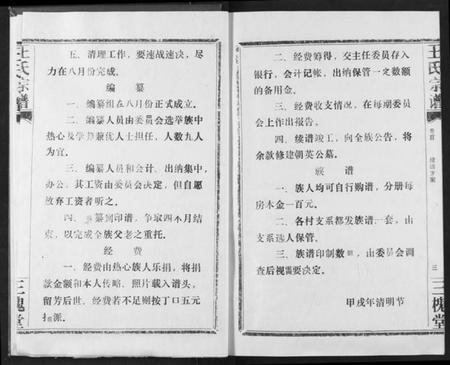 王氏宗谱
五、清理工作，要速战速决，尽
力在八月份完成。
编纂
一、编纂组在八月份正式成立。
二、编纂人员由委员会选举族中
热心及学兼优人士担任，人数九人
为宜。
三、编纂人员和会计、出纳集中，
办公，其工资由委员会决定，但自愿
放弃工资者听之。
四、纂到印谱，争取四个月结
束，以完成全族父老之重托。
经费
一、经费由热心族人乐捐，将捐
款金额和本人传略、照片载入谱头，
留芳后世。经费若不足则按丁口五元
派。
三槐堂
二、经费筹得，交主任委员存入
银行，会计记帐，出纳保管一定数额
的备用金。
三、经费收支情况，在每期委员
会上作出报告。
四、续谱竣工，向全族公告，将
余款修建朝英公墓。
族谱
一、族人均可自行购谱，分册每
房本金一百元。
二、各村支系都发族谱一套，由
支系选人保管。
三、族谱印制数，由委员会调
查后视需要决定。
甲戌年清明节
王氏宗谱
卷首
续谱方案
三
三槐堂